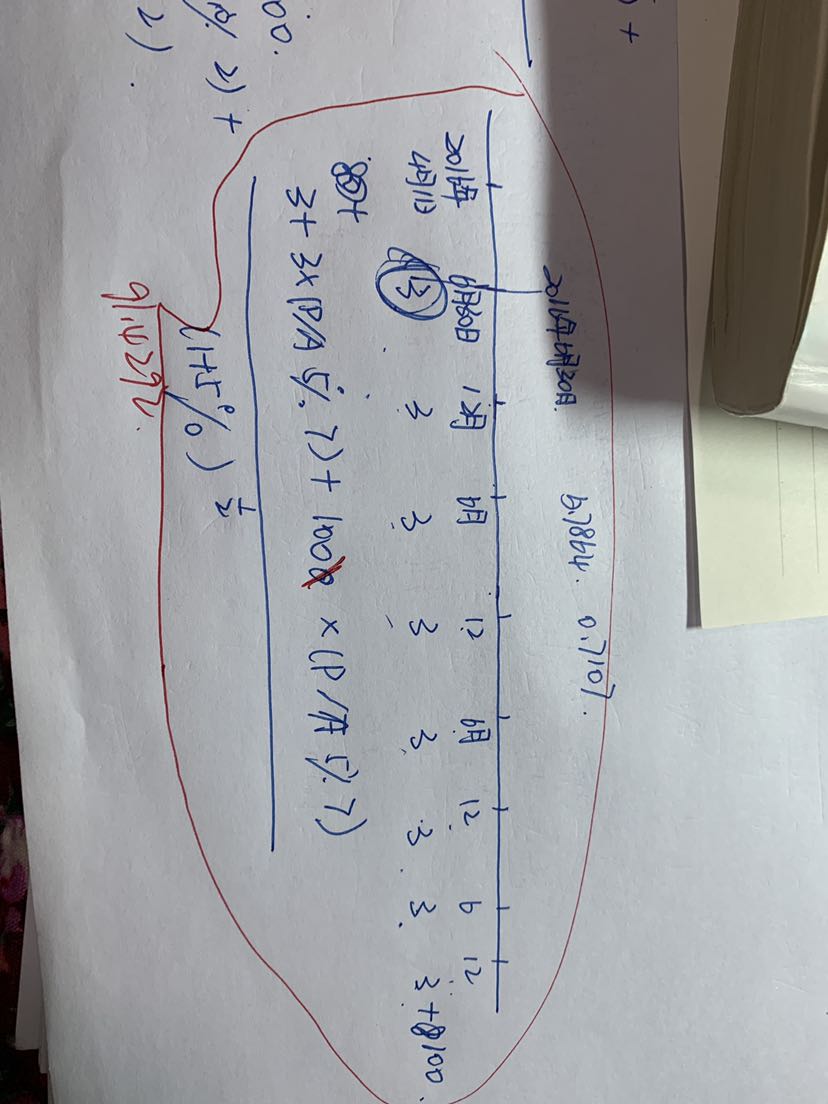 2016年4月30日.
5.7864. 0.7107.
2016年 6月30日 12月 6月 12 6月 12 6 12
4月1日 3 3 3 3 3 3 3 3+100.
3+3×P/A 5%.7)+100 ×(P/A 5%.7)
(1+5%)½
91.4292.
+
00.
% 2)+
2).